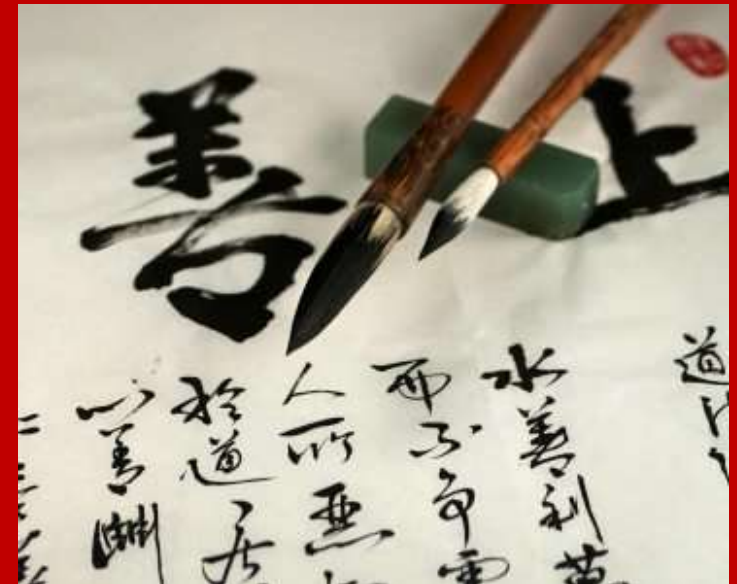 上善
道
水善利萬
而不争
人所惡
於道居
心善淵